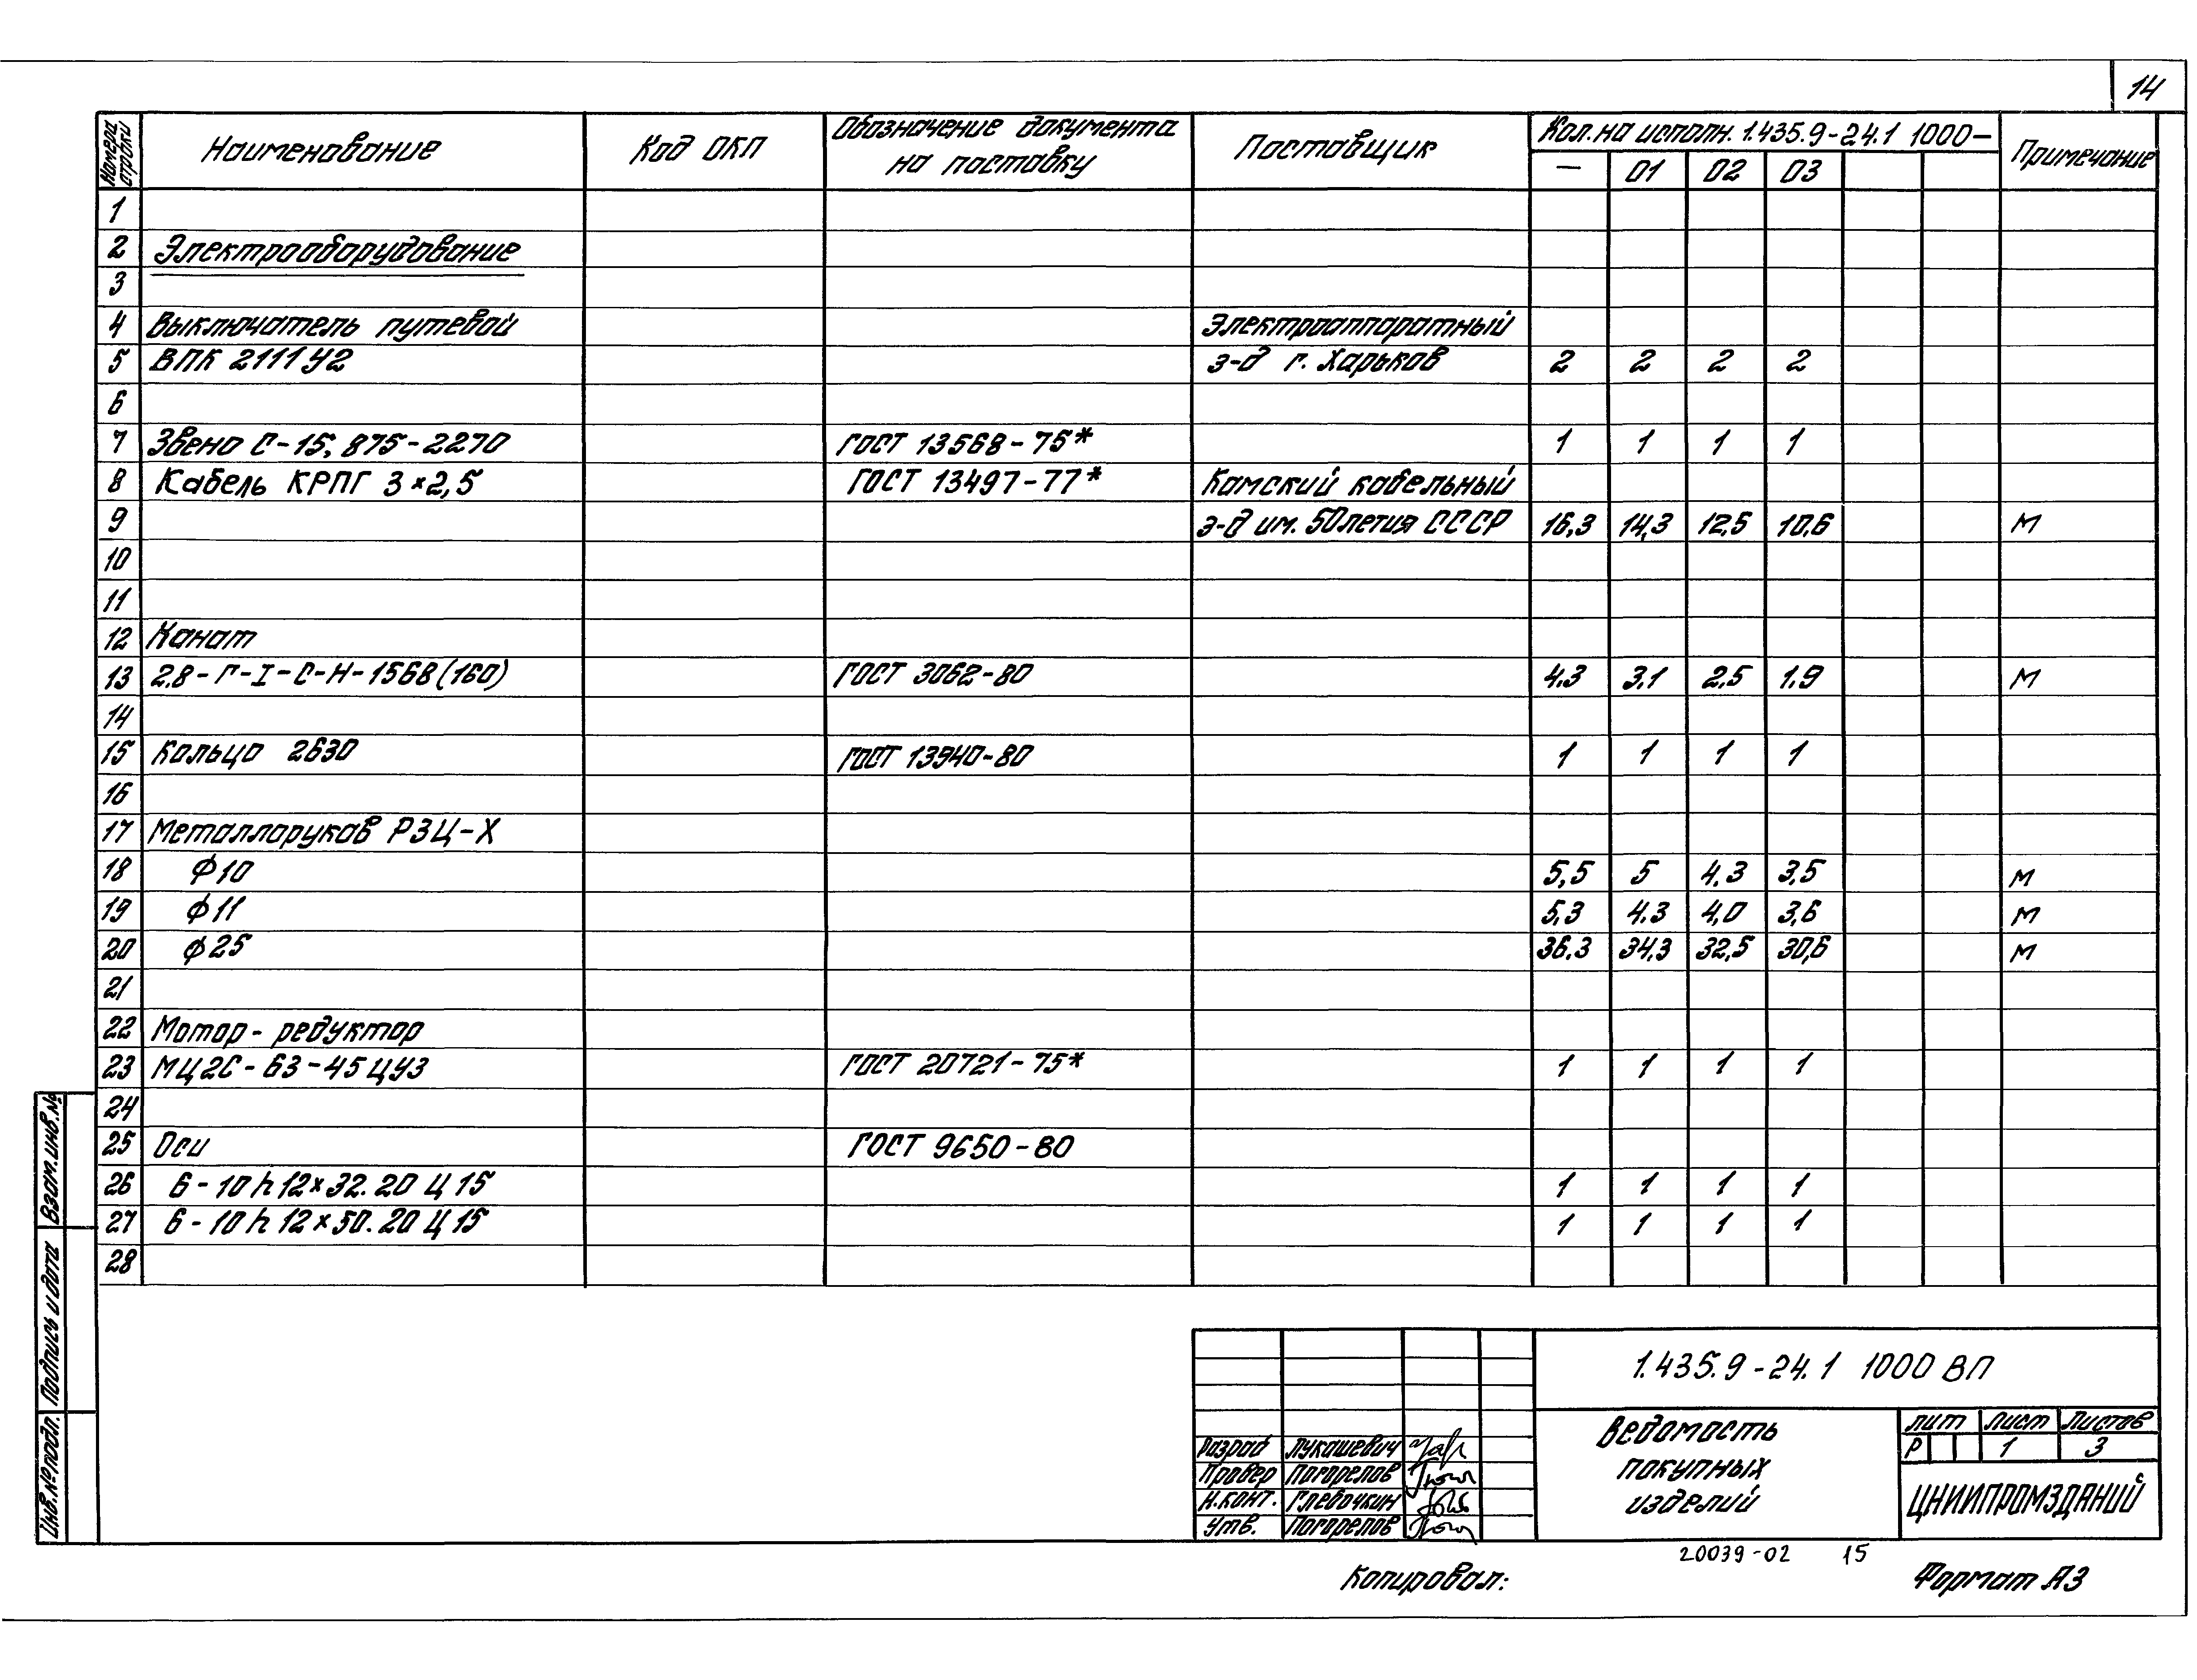 14
Номер строки | Наименование | Код ОКП | Обозначение документа на поставку | Поставщик | Кол. на исполн. 1.435.9-24.1 1000- | Примечание
— | 01 | 02 | 03
1
2 Электрооборудование
3
4 Выключатель путевой | Электроаппаратный
5 ВПК 2111У2 | з-д г. Харьков | 2 | 2 | 2 | 2
6
7 Звено С-15,875-2270 | ГОСТ 13568-75* | 1 | 1 | 1 | 1
8 Кабель КРПГ 3×2,5 | ГОСТ 13497-77* | Камский кабельный
9 з-д им. 50летия СССР | 16,3 | 14,3 | 12,5 | 10,6 | м
10
11
12 Канат
13 2.8-Г-I-С-Н-1568(160) | ГОСТ 3062-80 | 4.3 | 3.1 | 2,5 | 1.9 | м
14
15 Кольцо 2б30 | ГОСТ 13940-80 | 1 | 1 | 1 | 1
16
17 Металлорукав РЗЦ-Х
18 Ф10 | 5,5 | 5 | 4.3 | 3,5 | м
19 ф11 | 5,3 | 4.3 | 4,0 | 3,6 | м
20 ф25 | 36.3 | 34,3 | 32,5 | 30,6 | м
21
22 Мотор-редуктор
23 МЦ2С-63-45ЦУ3 | ГОСТ 20721-75* | 1 | 1 | 1 | 1
24
25 Оси | ГОСТ 9650-80
26 6-10h12×32.20 Ц15 | 1 | 1 | 1 | 1
27 6-10h12×50.20 Ц15 | 1 | 1 | 1 | 1
28
Взам. инв. №
Подпись и дата
Инв. № подл.
1.435.9-24.1 1000 ВП
Ведомость
покупных
изделий
лит | лист | Листов
Р | 1 | 3
ЦНИИПРОМЗДАНИЙ
Разраб | Лукашевич
Провер | Погорелов
Н.конт. | Глебочкин
Утв. | Погорелов
20039-02 15
Копировал: Формат А3